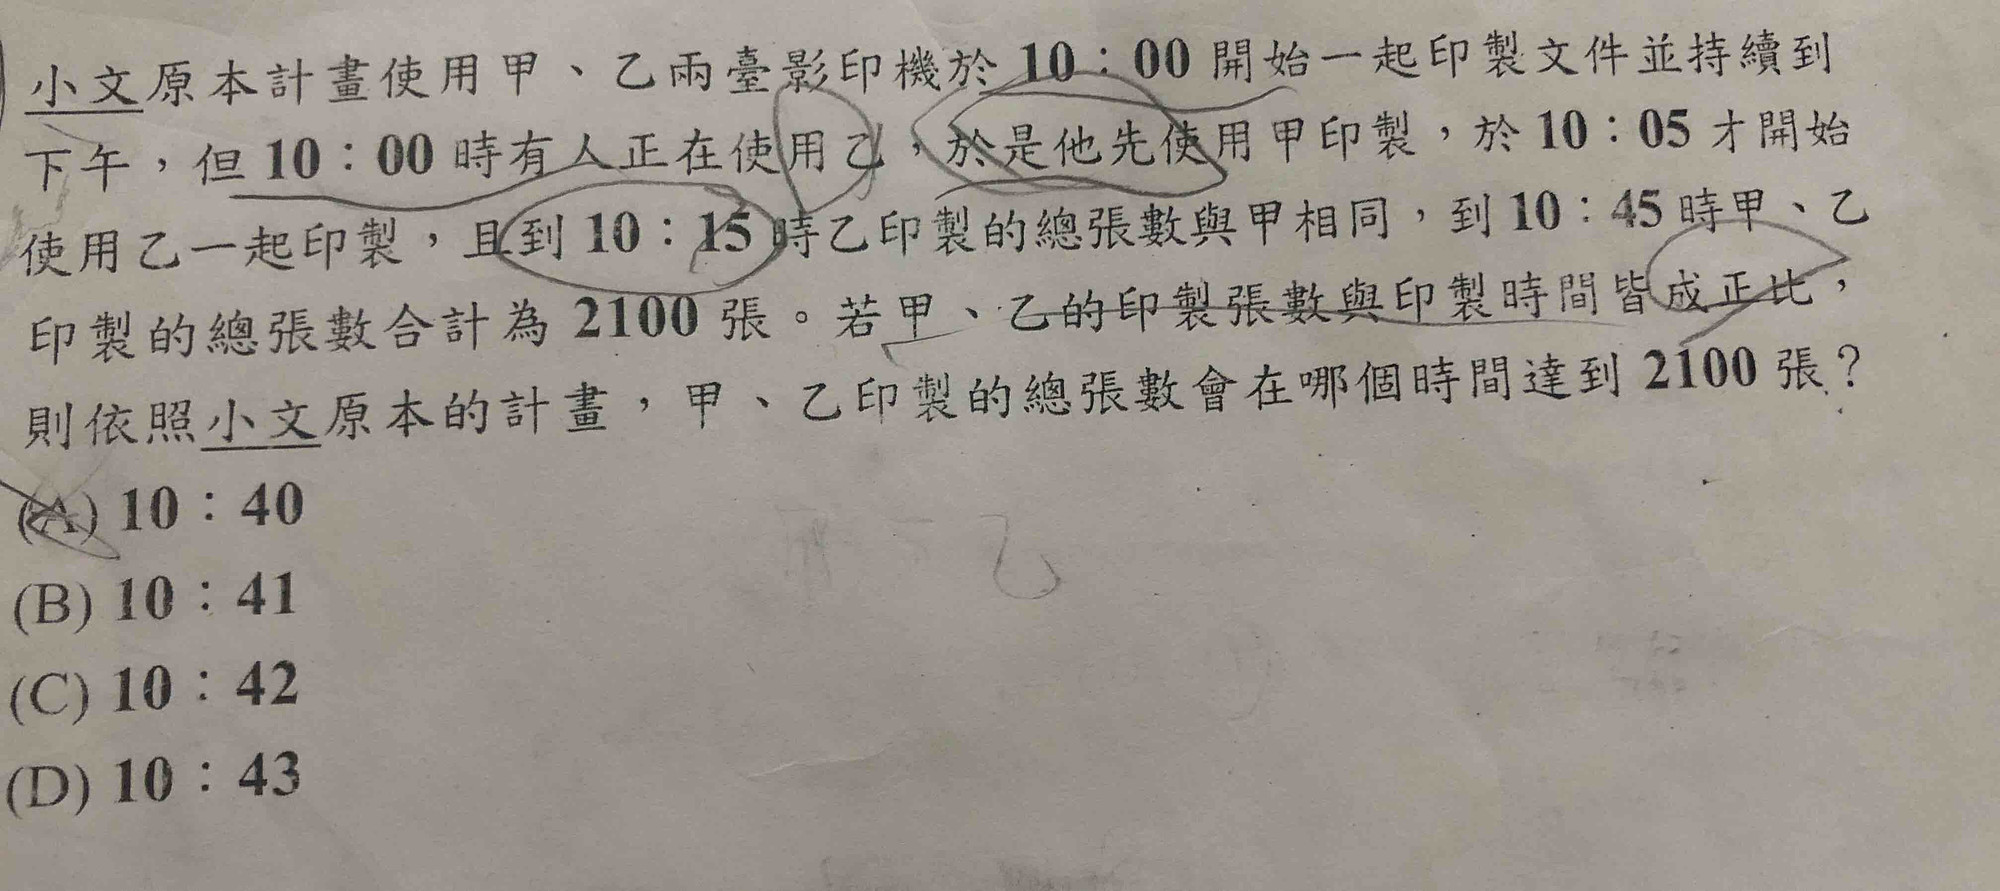 小文原本計畫使用甲、乙兩臺影印機於 10：00 開始一起印製文件並持續到
下午，但 10：00 時有人正在使用乙，於是他先使用甲印製，於 10：05 才開始
使用乙一起印製，且到 10：15 時乙印製的總張數與甲相同，到 10：45 時甲、乙
印製的總張數合計為 2100 張。若甲、乙的印製張數與印製時間皆成正比，
則依照小文原本的計畫，甲、乙印製的總張數會在哪個時間達到 2100 張？
(A) 10：40
(B) 10：41
(C) 10：42
(D) 10：43